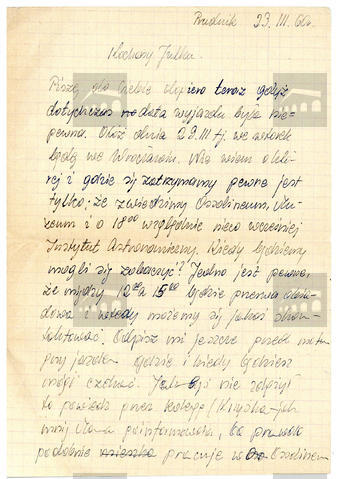 Prudnik 23. III. 66r.
Kochany Julku.
Piszę do Ciebie dopiero teraz gdyż
dotychczas data wyjazdu była nie-
pewna. Otóż dnia 29.III tj. we wtorek
będę we Wrocławiu. Nie wiem o któ-
rej i gdzie się zatrzymamy pewne jest
tylko, że zwiedzimy Ossolineum, Mu-
zeum i o 18⁰⁰ względnie nieco wcześniej
Instytut Astronomiczny. Kiedy będziemy
mogli się zobaczyć? Jedno jest pewne,
że między 12⁰⁰ a 15⁰⁰ będzie przerwa obia-
dowa i wtedy możemy się jakoś skon-
taktować. Odpisz mi jeszcze przed
przyjazdem gdzie i kiedy będziesz
mógł czekać. Jak byś nie zdążył
to powiedz przez kolegę
mnie poinformowała, prawdo
podobnie pracuje w Ossolineum